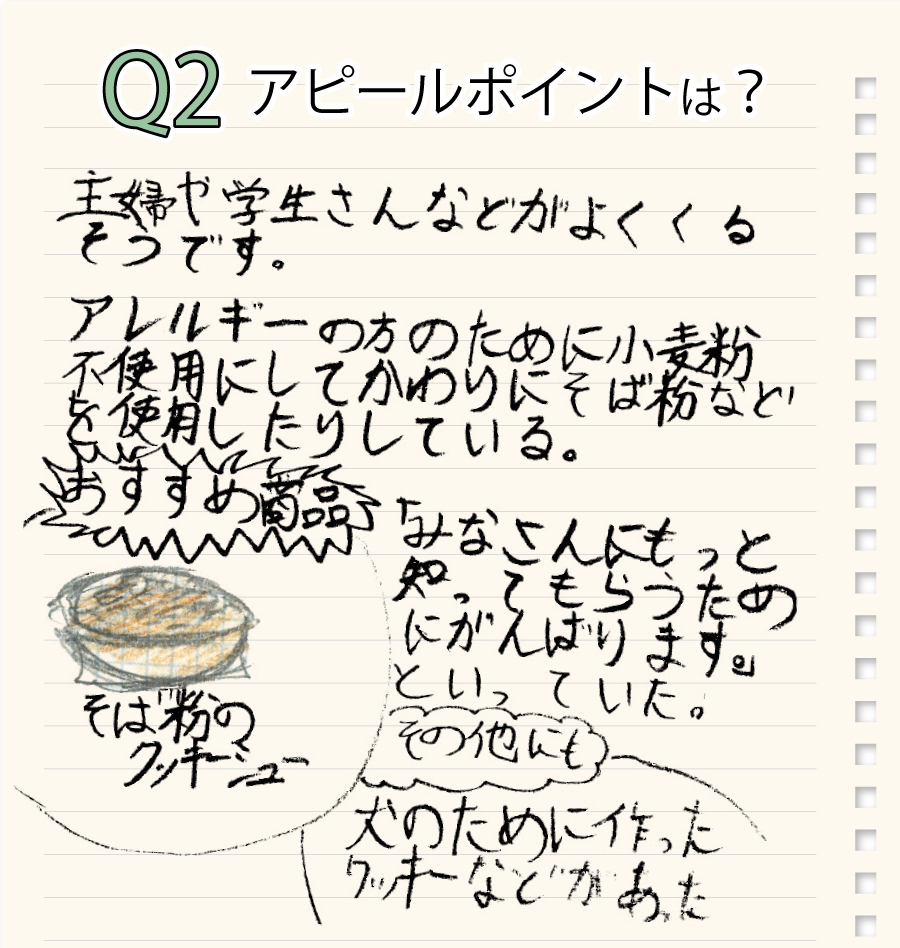 Q2 アピールポイントは？
主婦や学生さんなどがよくくる
そうです。
アレルギーの方のために小麦粉
不使用にしてかわりにそば粉など
を使用したりしている。
おすすめ商品
そば粉の
クッキーシュー
「みなさんにもっと
知ってもらうため
にがんばります。」
といっていた。
その他にも
犬のために作った
クッキーなどがあった